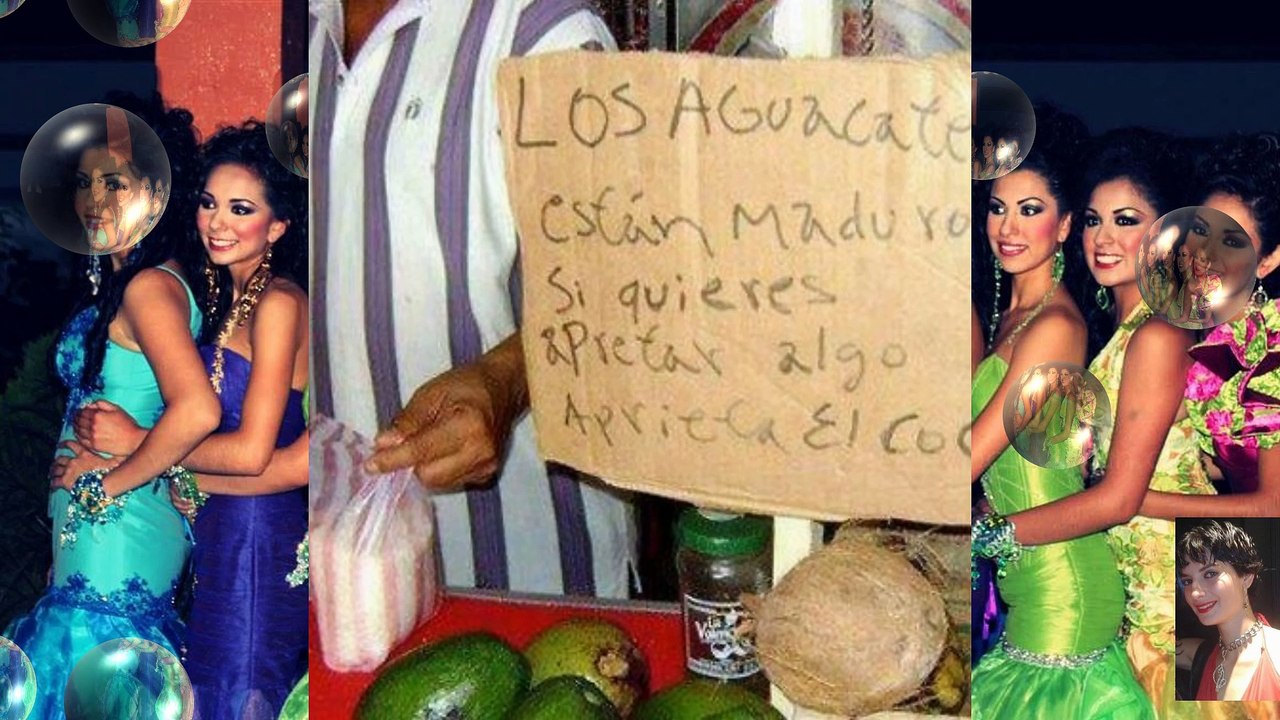 LOS AGUacate
están Maduro
Si quieres
apretar algo
Aprieta El coc
La